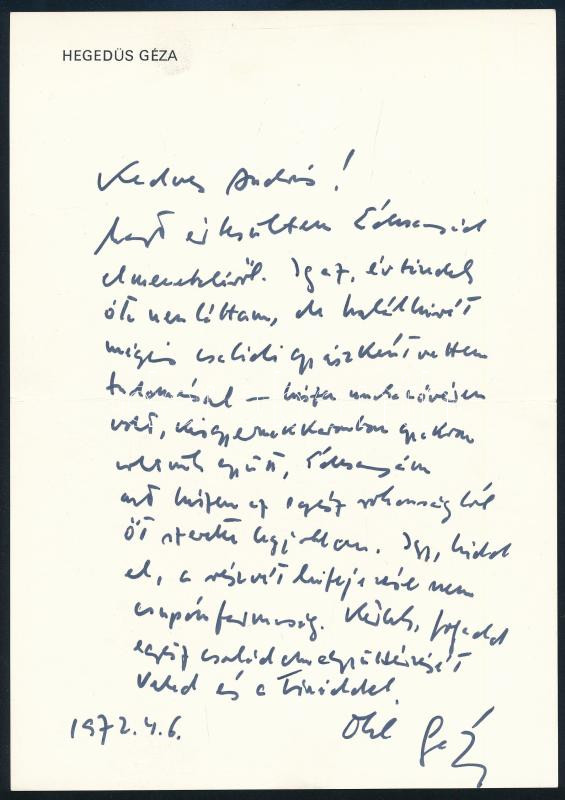 HEGEDÜS GÉZA
Kedves András!
Most értesültem Édesanyád
elmeneteléről. Igaz, évtizedek
óta nem láttam, de halálhírét
mégis családi gyászként vettem
tudomásul — hiszen unokanővérem
volt, kisgyermekkoromban gyakran
voltunk együtt, Édesanyám
azt hiszem az egész rokonságból
őt szerette legjobban. Így, hidd
el, a részvét kifejezése nem
csupán formaság. Kérlek, fogadd
egész családom együttérzését
Veled és a Tieiddel.
1972.4.6.
Ölel Géza